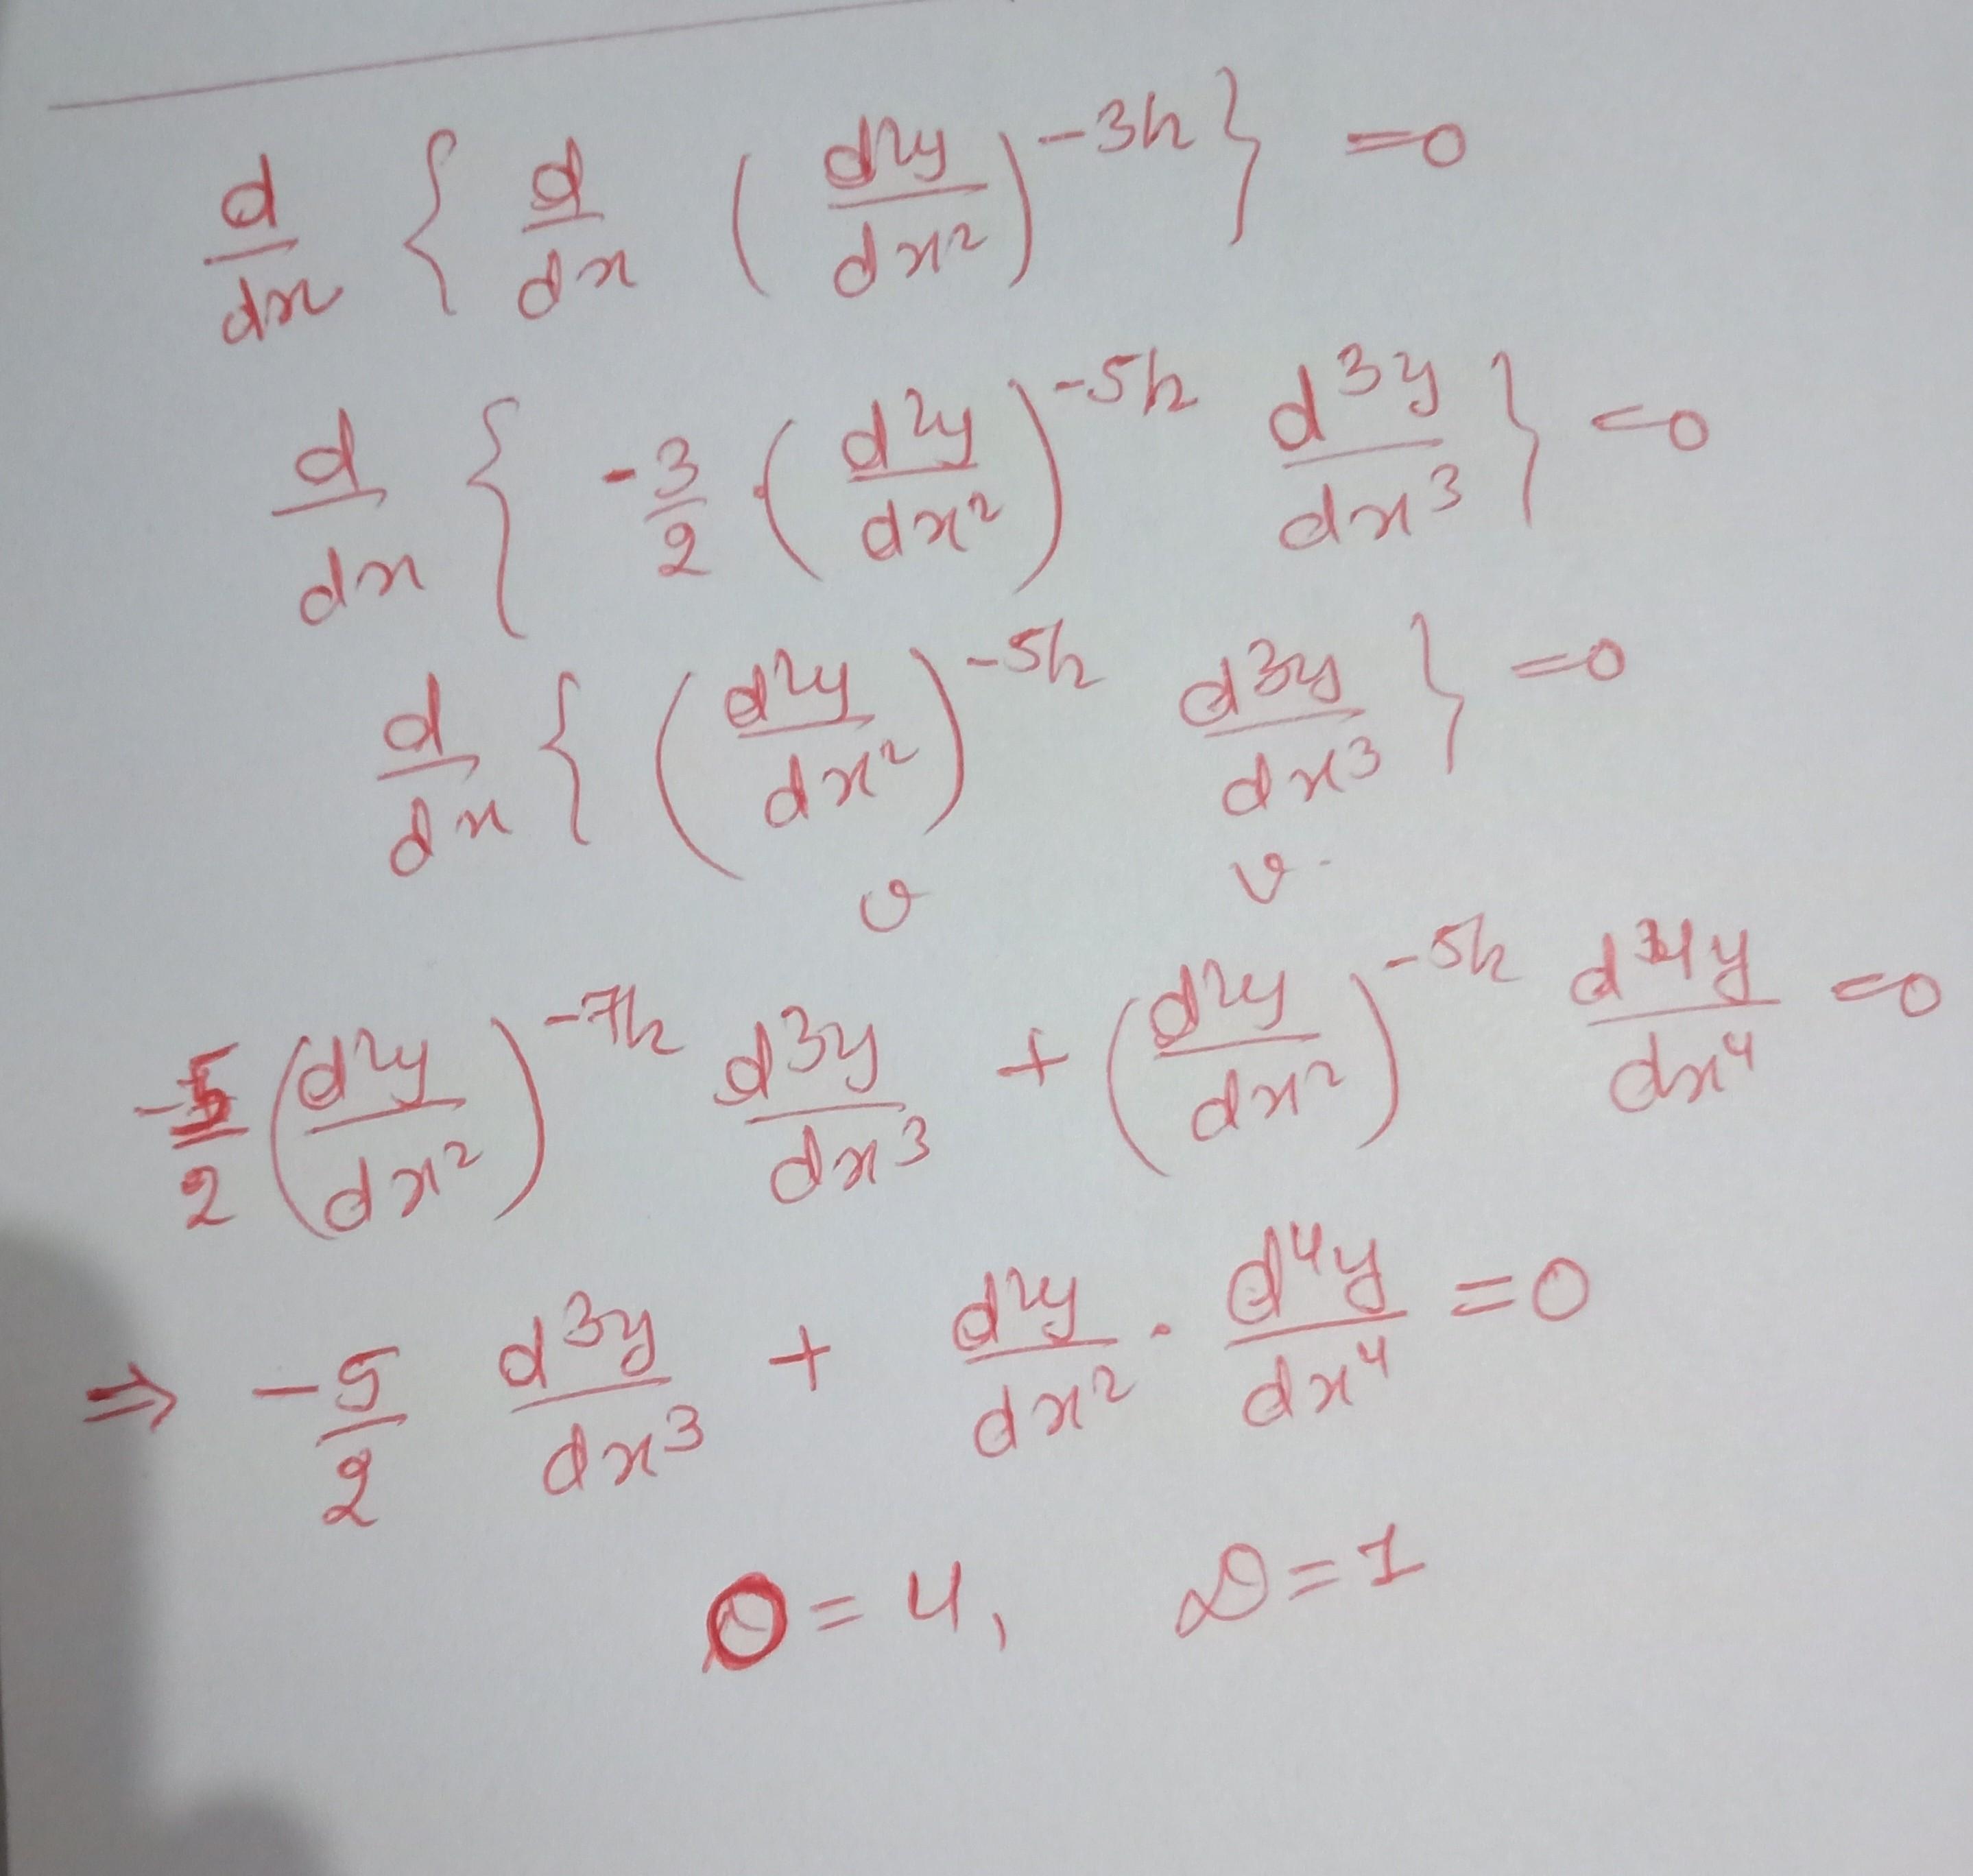 d/dx { d/dx (d²y/dx²)^(-3/2) } = 0
d/dx { -3/2 · (d²y/dx²)^(-5/2) d³y/dx³ } = 0
d/dx { (d²y/dx²)^(-5/2) d³y/dx³ } = 0
υ υ
-5/2 (d²y/dx²)^(-7/2) d³y/dx³ + (d²y/dx²)^(-5/2) d⁴y/dx⁴ = 0
⇒ -5/2 d³y/dx³ + d²y/dx² · d⁴y/dx⁴ = 0
O = 4, D = 1